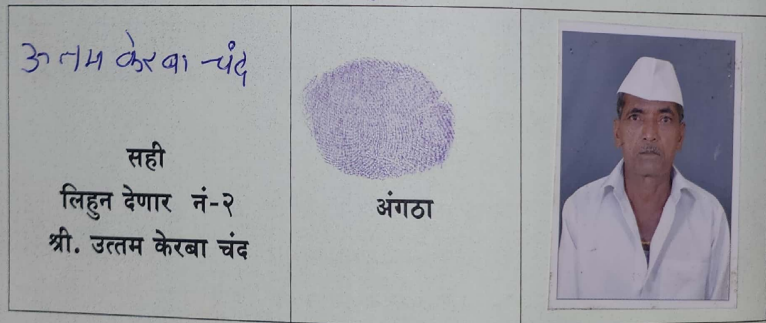 उत्तम केरबा चंद
सही
लिहुन देणार नं-२
श्री. उत्तम केरबा चंद
अंगठा